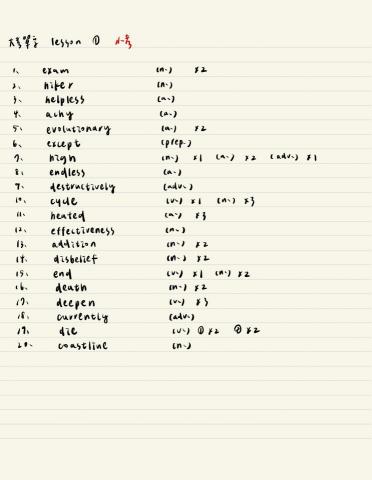 大考單字 lesson ① 小考
1. exam (n.) x2
2. hiker (n.)
3. helpless (a.)
4. achy (a.)
5. evolutionary (a.) x2
6. except (prep.)
7. high (n.) x1 (a.) x2 (adv.) x1
8. endless (a.)
9. destructively (adv.)
10. cycle (v.) x1 (n.) x3
11. heated (a.) x3
12. effectiveness (n.)
13. addition (n.) x2
14. disbelief (n.) x2
15. end (v.) x1 (n.) x2
16. death (n.) x2
17. deepen (v.) x3
18. currently (adv.)
19. die (v.) ① x2 ② x2
20. coastline (n.)